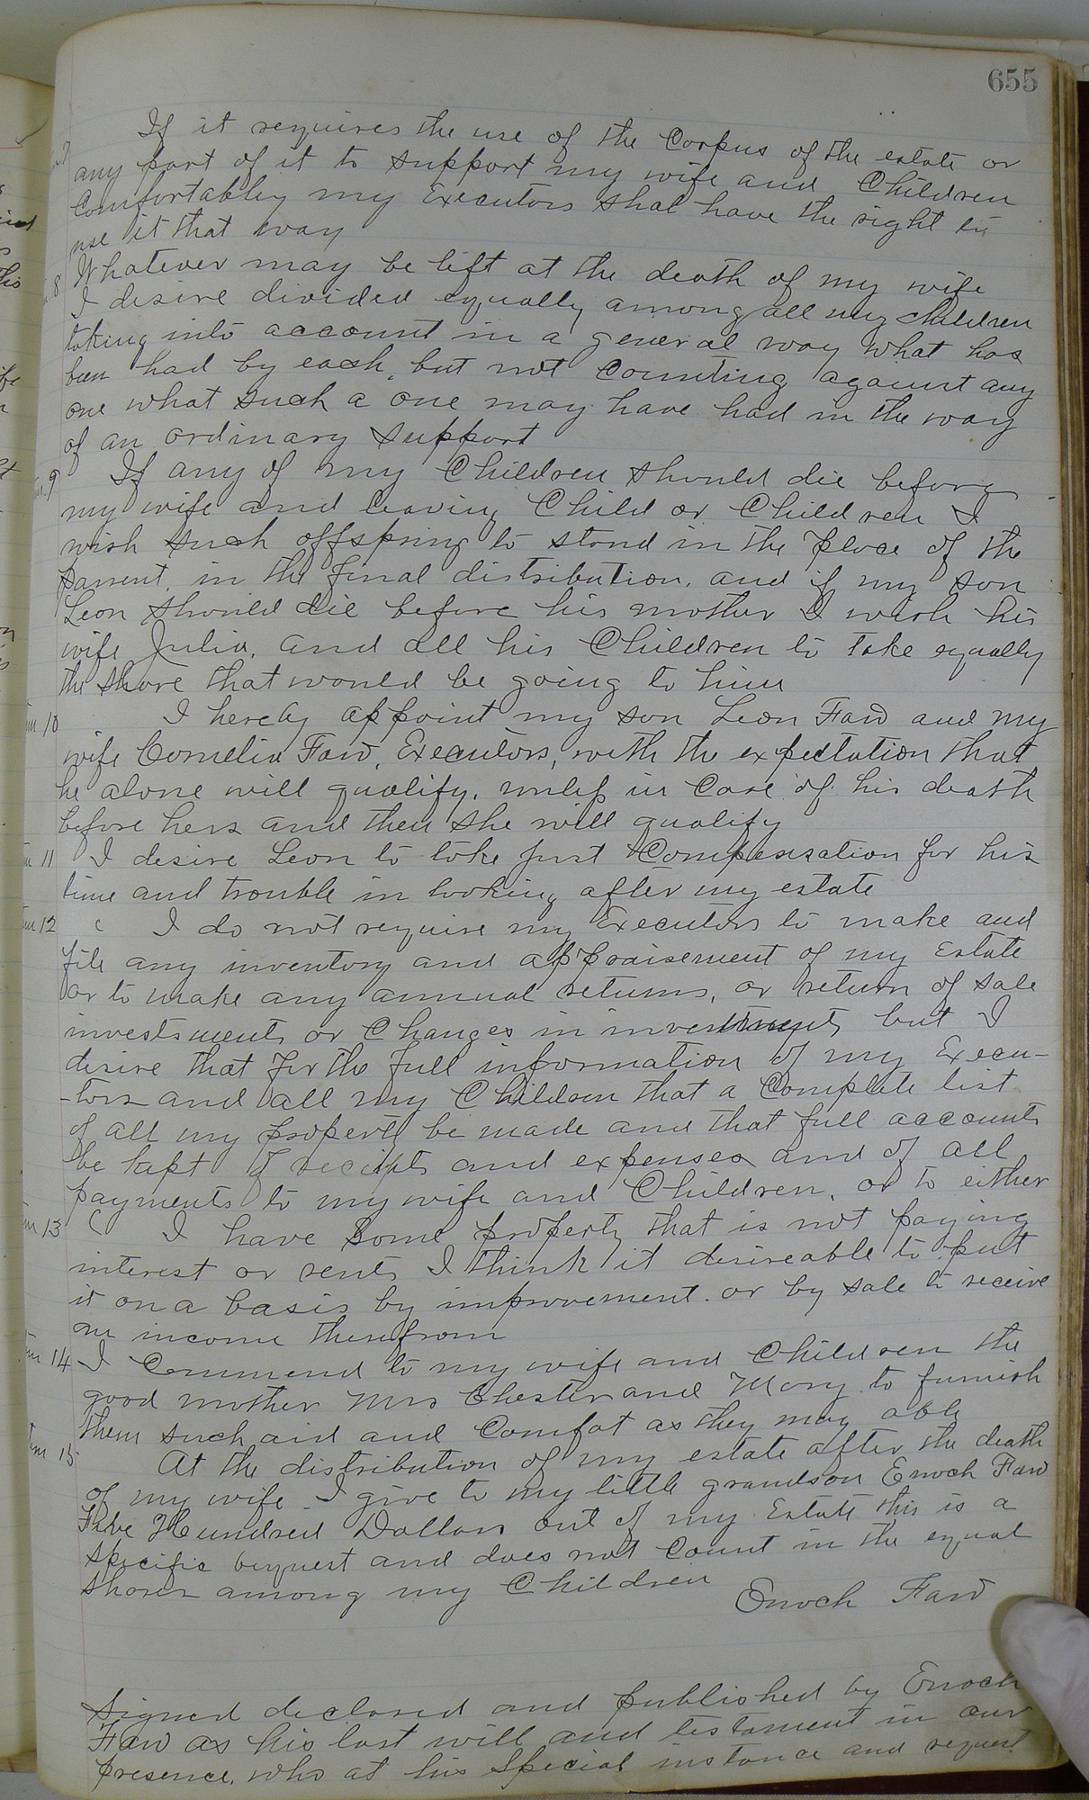 655
If it requires the use of the Corpus of the estate or
any part of it to support my wife and Children
Comfortabley my Executors shal have the right to
use it that way
8 Whatever may be left at the death of my wife
I desire divided equally among all my children
taking into account in a general way what has
been had by each, but not Counting against any
one what such a one may have had in the way
of an ordinary support
9 If any of my Children should die before
my wife and leaving Child or Children I
wish such offspring to stand in the place of the
parrent, in the final distribution, and if my son
Leon should die before his mother I wish his
wife Julia, and all his Children to take equally
the share that would be going to him
10 I hereby appoint my son Leon Faw and my
wife Cornelia Faw, Executors, with the expectation that
he alone will qualify, unless in Case of his death
before hers and then she will qualify
11 I desire Leon to take just Compensation for his
time and trouble in looking after my estate
12 I do not require my Executors to make and
file any inventory and appraisement of my Estate
or to make any annual returns, or return of sale
investments or Changes in investments but I
desire that for the full information of my Execu-
-tors and all my Children that a Complete list
of all my property be made and that full accounts
be kept of reciepts and expenses and of all
payments to my wife and Children, or to either
13 I have some property that is not paying
interest or rents I think it desireable to put
it on a basis by improvement or by sale to receive
an income therefrom
14 I Commend to my wife and Children the
good mother Mrs Chester and Mary to furnish
them such aid and Comfot as they may able
15 At the distribution of my estate after the death
of my wife I give to my little grandson Enoch Faw
Five Hundred Dollars out of my Estate this is a
specific bequest and does not Count in the equal
shares among my Children
Enoch Faw
Signed declared and published by Enoch
Faw as his last will and testament in our
presence, who at his special instance and request